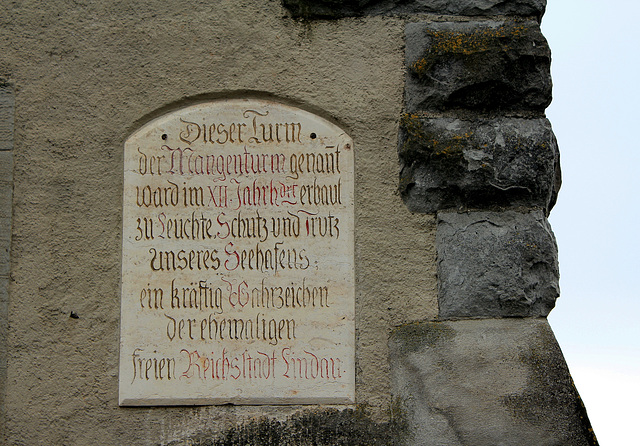 Dieser Turm
der Mangenturm genañt
ward im XII. Jahrhdrt erbaut
zu Leuchte, Schutz und Trutz
unseres Seehafens;
ein kräftig Wahrzeichen
der ehemaligen
freien Reichsstadt Lindau.